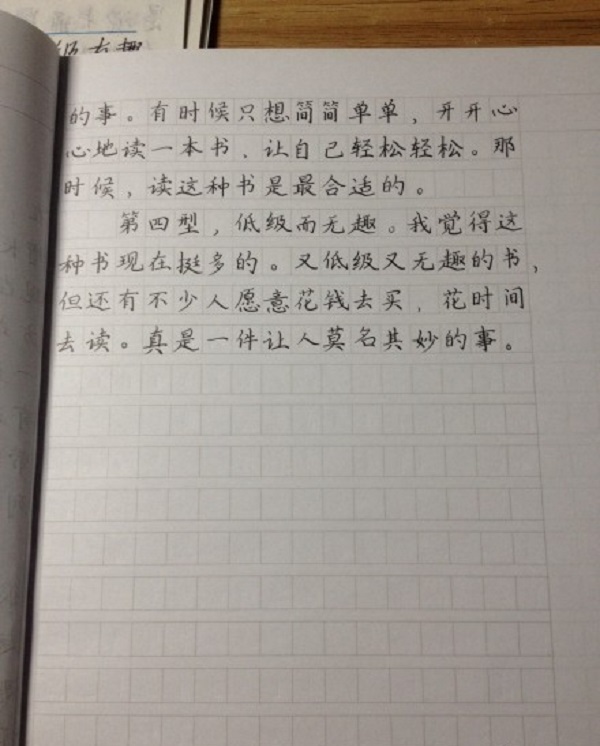 的事。有时候只想简简单单，开开心
心地读一本书、让自己轻松轻松。那
时候，读这种书是最合适的。
第四型，低级而无趣。我觉得这
种书现在挺多的。又低级又无趣的书，
但还有不少人愿意花钱去买，花时间
去读。真是一件让人莫名其妙的事。